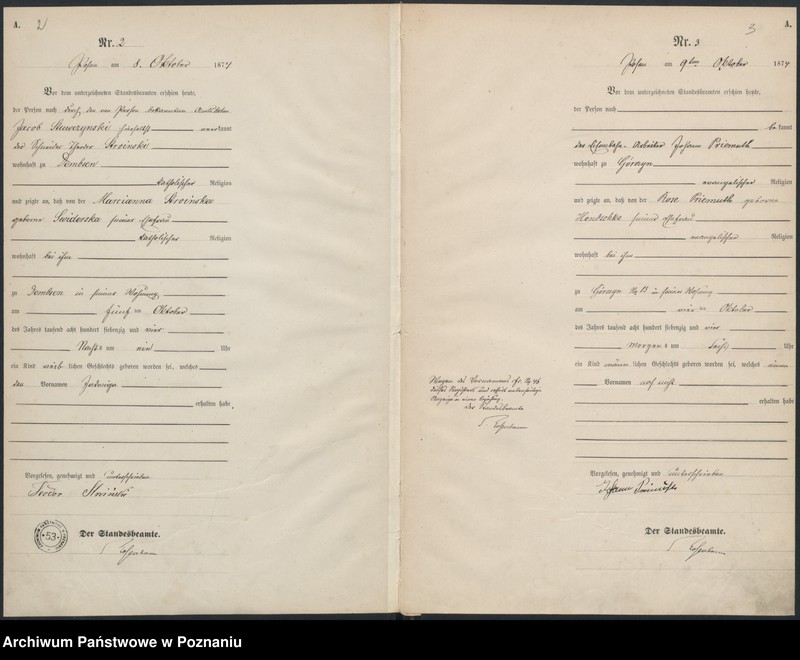 A.
2
Nr. 2
am 8. Oktober 1874
Vor dem unterzeichneten Standesbeamten erschien heute,
der Person nach durch den von Person bekannten
Jacob erkannt
der Schneider Theodor Stroinski
wohnhaft zu Dembsen
katholischer Religion
und zeigte an, daß von der Marcianna Stroinska
geborne Swiderska seiner Ehefrau
katholischer Religion
wohnhaft bei ihm
zu Dembsen in seiner Wohnung
am fünf ten Oktober
des Jahres tausend acht hundert siebenzig und vier
Nachts um ein Uhr
ein Kind weib lichen Geschlechts geboren worden sei, welches
den Vornamen Jadwiga
erhalten habe.
Vorgelesen, genehmigt und unterschrieben
Teodor Stroiński
Der Standesbeamte.
53
3
A.
Nr. 3
am 9ten Oktober 1874
Vor dem unterzeichneten Standesbeamten erschien heute,
der Person nach
be kannt
der Eisenbahn-Arbeiter Johann Priemuth
wohnhaft zu Górczyn
evangelischer Religion
und zeigte an, daß von der Rose Priemuth geborne
seiner Ehefrau
evangelischer Religion
wohnhaft bei ihm
zu Górczyn No 13 in seiner Wohnung
am vier ten Oktober
des Jahres tausend acht hundert siebenzig und vier
Morgens um sechs Uhr
ein Kind männ lichen Geschlechts geboren worden sei, welches
Vornamen noch nicht
erhalten habe
Wegen des Vornamens
der Standesbeamte
Vorgelesen, genehmigt und unterschrieben
Johann
Der Standesbeamte.
Archiwum Państwowe w Poznaniu